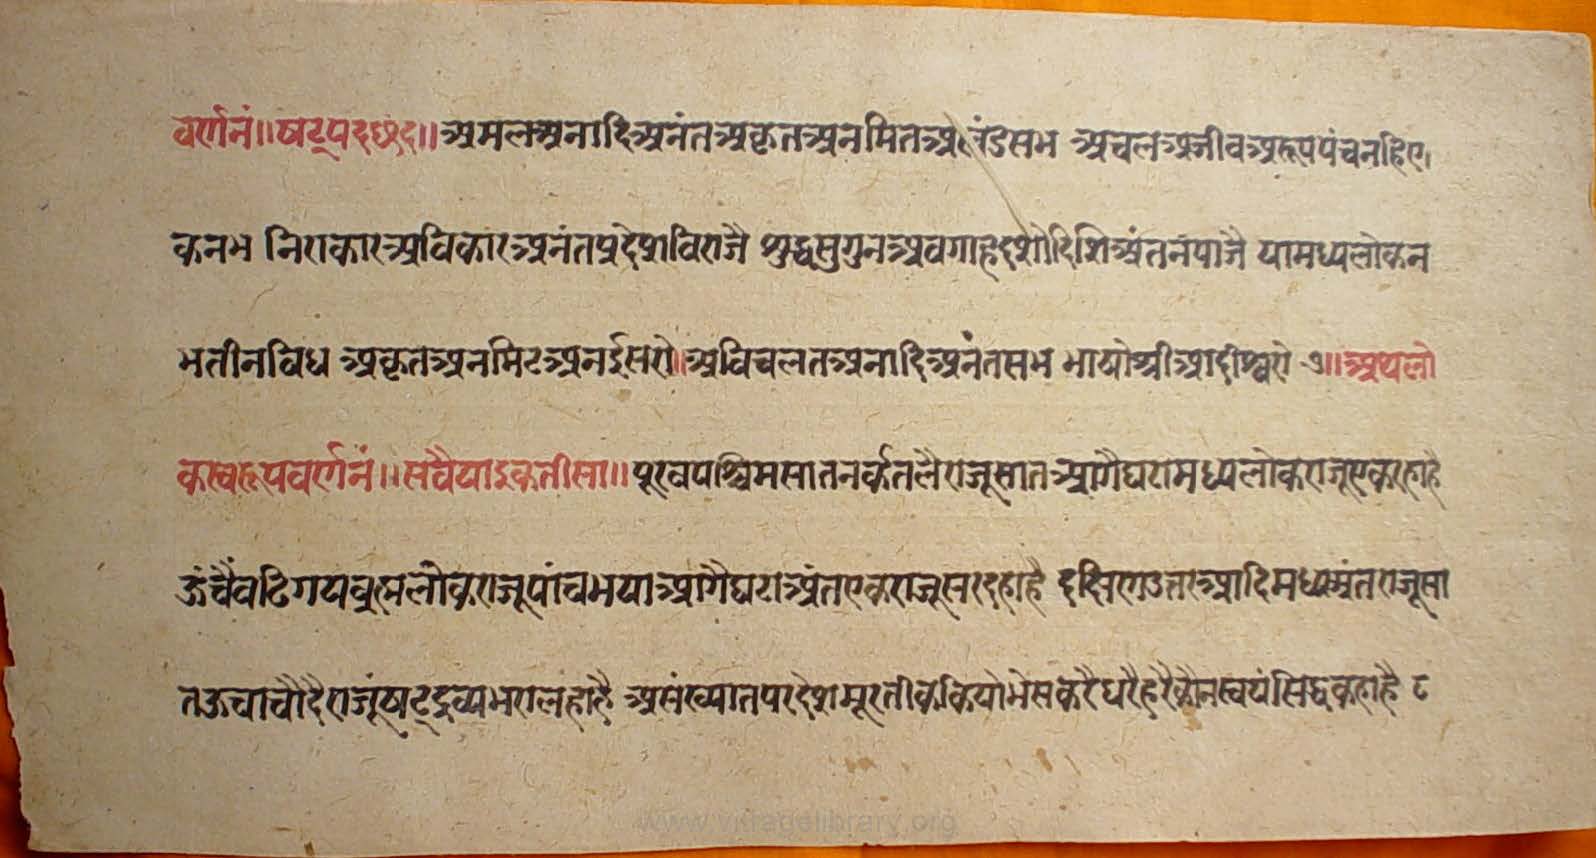 वर्णनं॥षट्पदछंद॥अमलअनादिअनंतअकृतअनमितअखंडसभ अचलअजीवअरूपपंचनहिए।
कनभ निराकारअविकारअनंतप्रदेशविराजै शुद्धसुगुनअवगाहदशोदिशिअंतनपाजै यामध्यलोकन
भतीनविध अकृतअनमिटअनईसरो॥अविचलतअनादिअनंतसभ भाषोश्रीआदीश्वरो ७॥अथलो
कस्वरूपवर्णनं॥सवैयाइकतीसा॥पूरवपश्चिमसातनर्कतलैराजूसात आगैघटामध्यलोकराजूएकरहाहै
ऊंचैवढिगयब्रह्मलोकराजूपांचभया आगैघटाअंतएकराजूसरदहाहै दक्षिणउत्तरआदिमध्यअंतराजूसा
तऊचाचौदैराजूंषट्द्रव्यभरालहाहै असंख्यातपरदेशमूरतीककियोभेसकरैधरैहरैकौनस्वयंसिद्धकहाहै ८
www.vkragelibrary.org